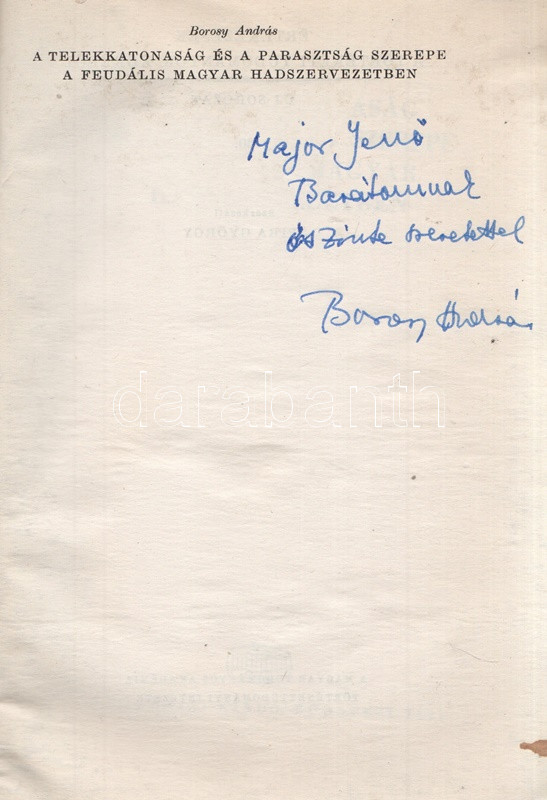 Borosy András
A TELEKKATONASÁG ÉS A PARASZTSÁG SZEREPE
A FEUDÁLIS MAGYAR HADSZERVEZETBEN
Major Jenő
Barátomnak
őszinte szeretettel
Borosy András
darabanth